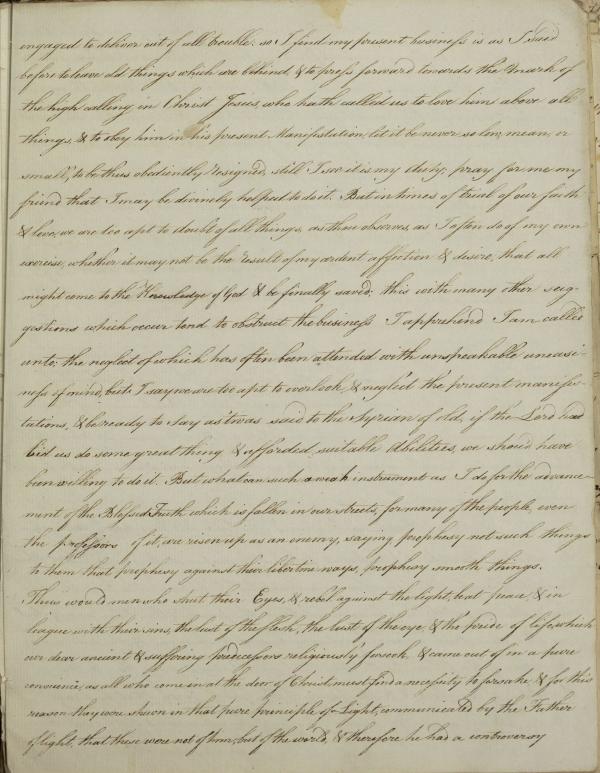 engaged to deliver out of all trouble: so I find my present business is as I said
before to leave old things which are behind, & to press forward towards the Mark of
the high calling in Christ Jesus, who hath called us to love him above all
things, & to obey him in his present Manifestation, let it be never so low, mean, or
small, to be thus obediently resigned, still I see it is my duty; pray for me my
friend that I may be divinely helped to do it. But in times of trial of our faith
& love, we are too apt to doubt of all things, as thou observes, as I often do of my own
exercise, whether it may not be the result of my ardent affection & desire, that all
might come to the Knowledge of God & be finally saved; this with many other sug-
gestions which occur tend to obstruct the business I apprehend I am called
unto; the neglect of which has often been attended with unspeakable uneasi-
ness of mind, but I say we are too apt to overlook, & neglect the present manifes-
tations, & be ready to say as 'twas said to the Syrian of old, if the Lord had
bid us do some great thing & afforded suitable Abilities, we should have
been willing to do it. But what can such a weak instrument as I do for the advance-
ment of the Blessed Truth which is fallen in our streets, for many of the people, even
the professors of it, are risen up as an enemy, saying prophesy not such things
to them that prophesy against their libertine ways, prophesy smooth things.
These would men who shut their Eyes, & rebel against the light, have peace, & in
league with their sins, the lust of the flesh, the lust of the eye, & the pride of life, which
our dear ancient & suffering predecessors religiously forsook & came out of in a pure
convience, as all who come in at the door of Christ must find a necessity to forsake & for this
reason they were shewn in that pure principle of Light, communicated by the Father
of light, that these were not of him, but of the world, & therefore he had a controversy